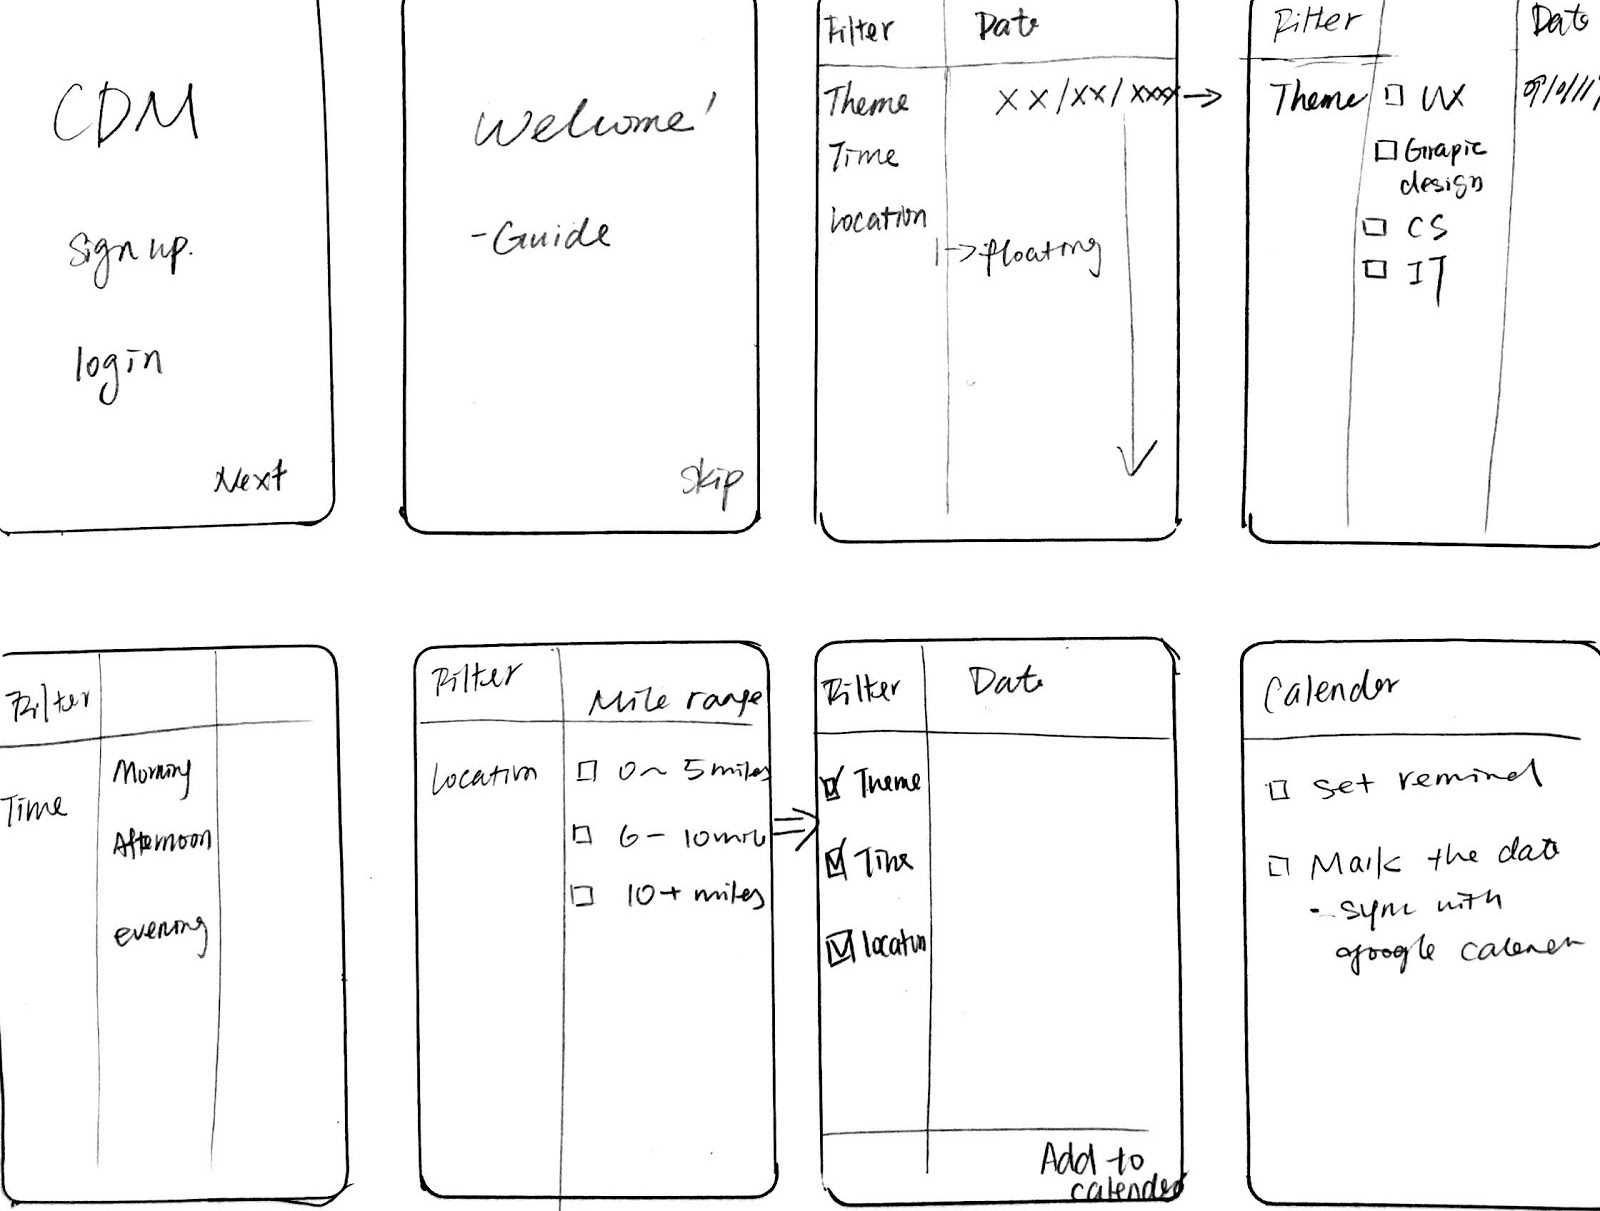 CDM
Sign up.
login
Next
Welcome!
-Guide
Skip
Filter Date
Theme XX/XX/XXXX →
Time
Location
→ floating
Filter Date
Theme □ UX
□ Grapic
design
□ CS
□ IT
Filter
Time
Morning
Afternoon
evening
Filter Mile range
Location □ 0~5 miles
□ 6-10
□ 10+ miles
Filter Date
☑ Theme
☑ Time
☑ Location
Add to
calender
Calender
□ Set remind
□ Mark the date
- Sync with
google